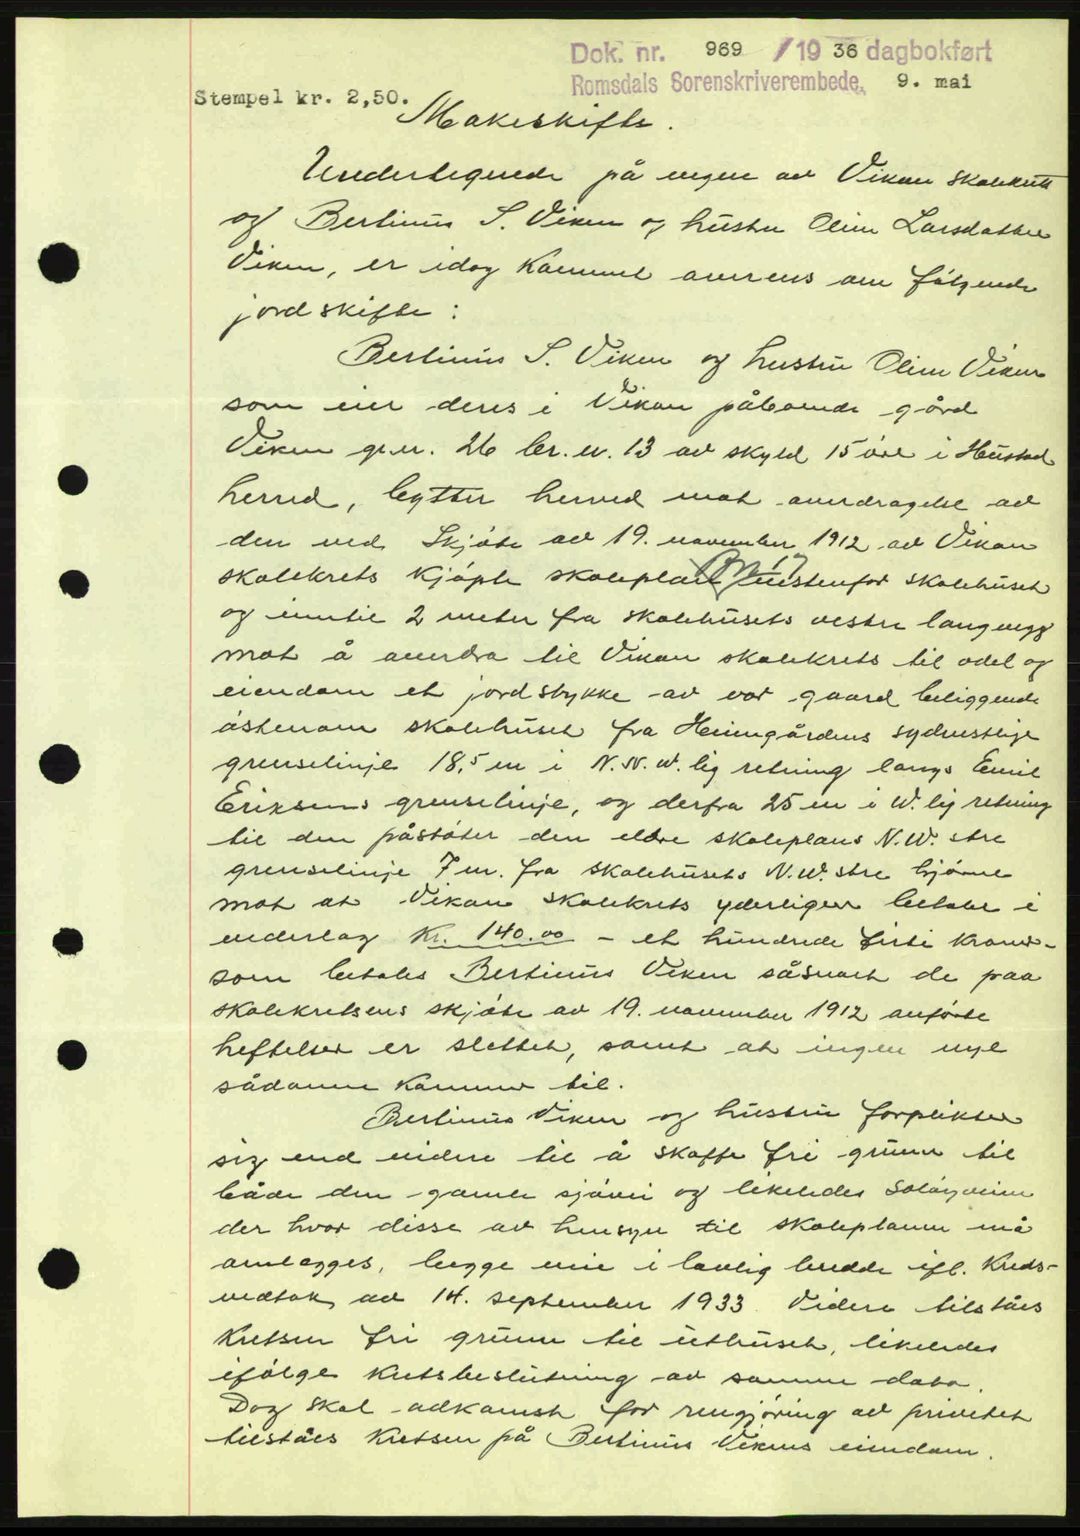 Dok. nr. 969 /1936 dagbokført
Romsdals Sorenskriverembede, 9. mai
Stempel kr. 2,50.
Makeskifte.
Undertegnede på vegne av Vikan skolekrets
og Bertinus S. Viken og hustru Oline Larsdatter
Viken, er idag kommet overens om følgende
jordskifte:
Bertinus S. Viken og hustru Oline Viken
som eier deres i Vikan påboende gård
Viken gr.nr. 26 br.nr. 13 av skyld 15 øre i Hustad
herred, bytter herved mot overdragelse av
den ved Skjøte av 19. november 1912 av Vikan
skolekrets kjøpte skoleplan vestenfor skolehuset
og inntil 2 meter fra skolehusets vestre langvegg
mot å overdra til Vikan skolekrets til odel og
eiendom et jordstykke av vor gaard beliggende
østenom skolehuset fra Heimgårdens sydvestlige
grenselinje 18,5 m i N.N.W. lig retning langs Emil
Eriksens grenselinje, og derfra 25 m i W. lig retning
til den påstøter den eldre skoleplans N.W. stre
grenselinje 7 m. fra skolehusets N.W. stre hjørne
mot at Vikan skolekrets yderligere betaler i
vederlag Kr. 140.00 - et hundrede førti kroner-
som betales Bertinus Viken såsnart de paa
skolekretsens skjøte av 19. november 1912 anførte
heftelser er slettet, samt at ingen nye
sådanne kommer til.
Bertinus Viken og hustru forplikter
sig end videre til å skaffe fri grunn til
både den gamle sjøvei og likeledes Soløyveien
der hvor disse av hensyn til skoleplanen må
omlegges, begge veie i lovlig bredde ifl. Krets-
vedtak av 14. september 1933. Videre tilståes
Kretsen fri grunn til uthuset, likeledes
ifølge Kretsbeslutning av samme dato.
Dog skal adkomst for rengjøring av privetet
tilståes Kretsen på Bertinus Vikens eiendom.